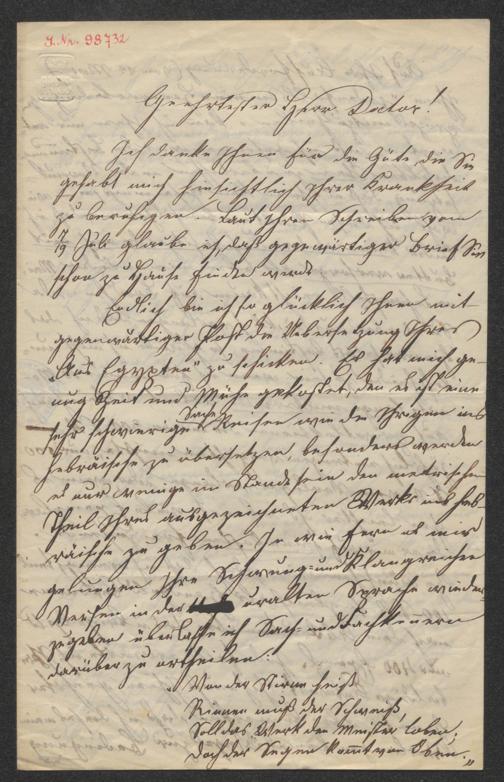 J. Nr. 98732
Geehrtester Herr Doctor!
Ich danke Ihnen für die Güte, die Sie
gehabt mich hinsichtlich Ihrer Krankheit
zu beruhigen. Laut Ihrem Schreiben vom
7/19 Juli glaube ich, daß gegenwärtiger Brief Sie
schon zu Hause finden werde
Endlich bin ich so glücklich Ihnen mit
gegenwärtiger Post die Uebersetzung Ihres
"Aus Egypten" zu schicken. Es hat mich ge-
nug Zeit und Mühe gekostet, den es ist eine
sehr schwierige Sache Reisen wie die Ihrigen ins
hebraische zu übersetzen, besonders werden
es nur wenige im Stande sein den metrischen
Theil Ihres ausgezeichneten Werks ins heb-
räische zu geben. In wie fern es mir
gelungen Ihre Schwung- und Klangreichen
Versen in der uralten Sprache wieder-
zugeben überlasse ich Sach- und Fachkennern
darüber zu ortheilen.
"Von der Stirne heiß
Rinnen muß der Schweiß,
Soll das Werk den Meister loben,
Doch der Segen kommt von Oben."